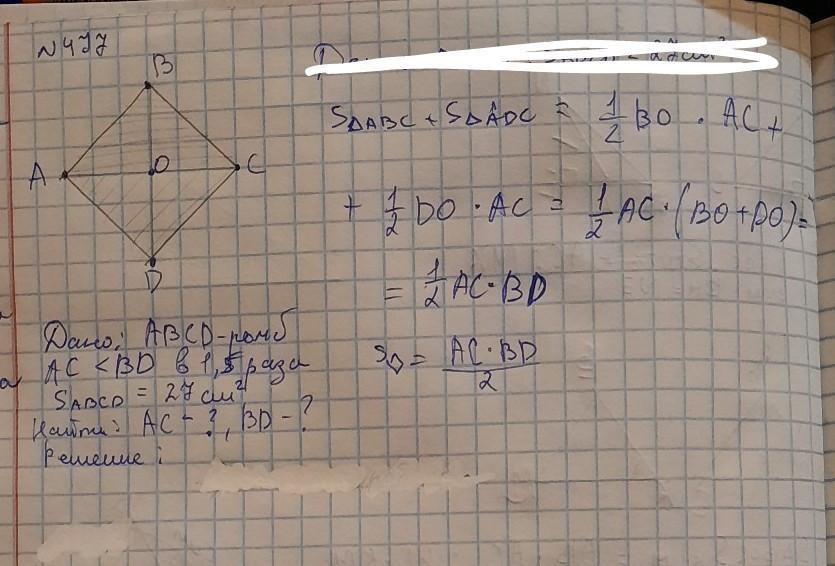 N477
B
A
O
C
D
Дано: ABCD-ромб
AC < BD в 1,5 раза
SABCD = 27 см²
Найти: AC - ?, BD - ?
Решение:
S∆ABC + S∆ADC = 1/2 BO · AC +
+ 1/2 DO · AC = 1/2 AC · (BO + DO) =
= 1/2 AC · BD
S◇ = AC · BD / 2